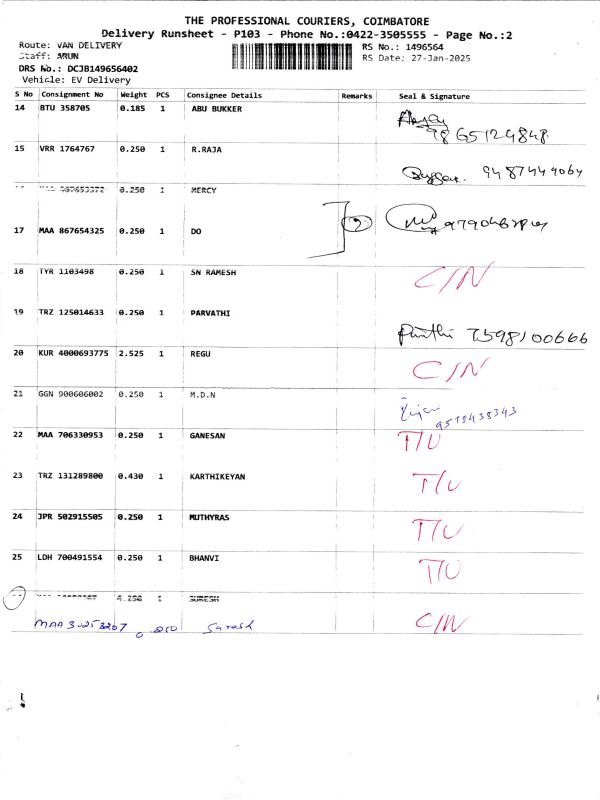 THE PROFESSIONAL COURIERS, COIMBATORE
Delivery Runsheet - P103 - Phone No.:0422-3505555 - Page No.:2
Route: VAN DELIVERY
RS No.: 1496564
Staff: ARUN
RS Date: 27-Jan-2025
DRS No.: DCJB149656402
Vehicle: EV Delivery
S No Consignment No Weight PCS Consignee Details Remarks Seal & Signature
14 BTU 358705 0.185 1 ABU BUKKER
9865124848
15 VRR 1764767 0.250 1 R.RAJA
9487444064
0.250 1 MERCY
17 MAA 867654325 0.250 1 DO
18 TYR 1103498 0.250 1 SN RAMESH C/N
19 TRZ 125014633 0.250 1 PARVATHI
7598100666
20 KUR 4000693775 2.525 1 REGU C/N
21 GGN 900606002 0.250 1 M.D.N
9513438343
22 MAA 706330953 0.250 1 GANESAN T/U
23 TRZ 131289800 0.430 1 KARTHIKEYAN T/U
24 JPR 502915505 0.250 1 MUTHYRAS T/U
25 LDH 700491554 0.250 1 BHANVI T/U
1 SURESH
C/N
0.250 Suresh